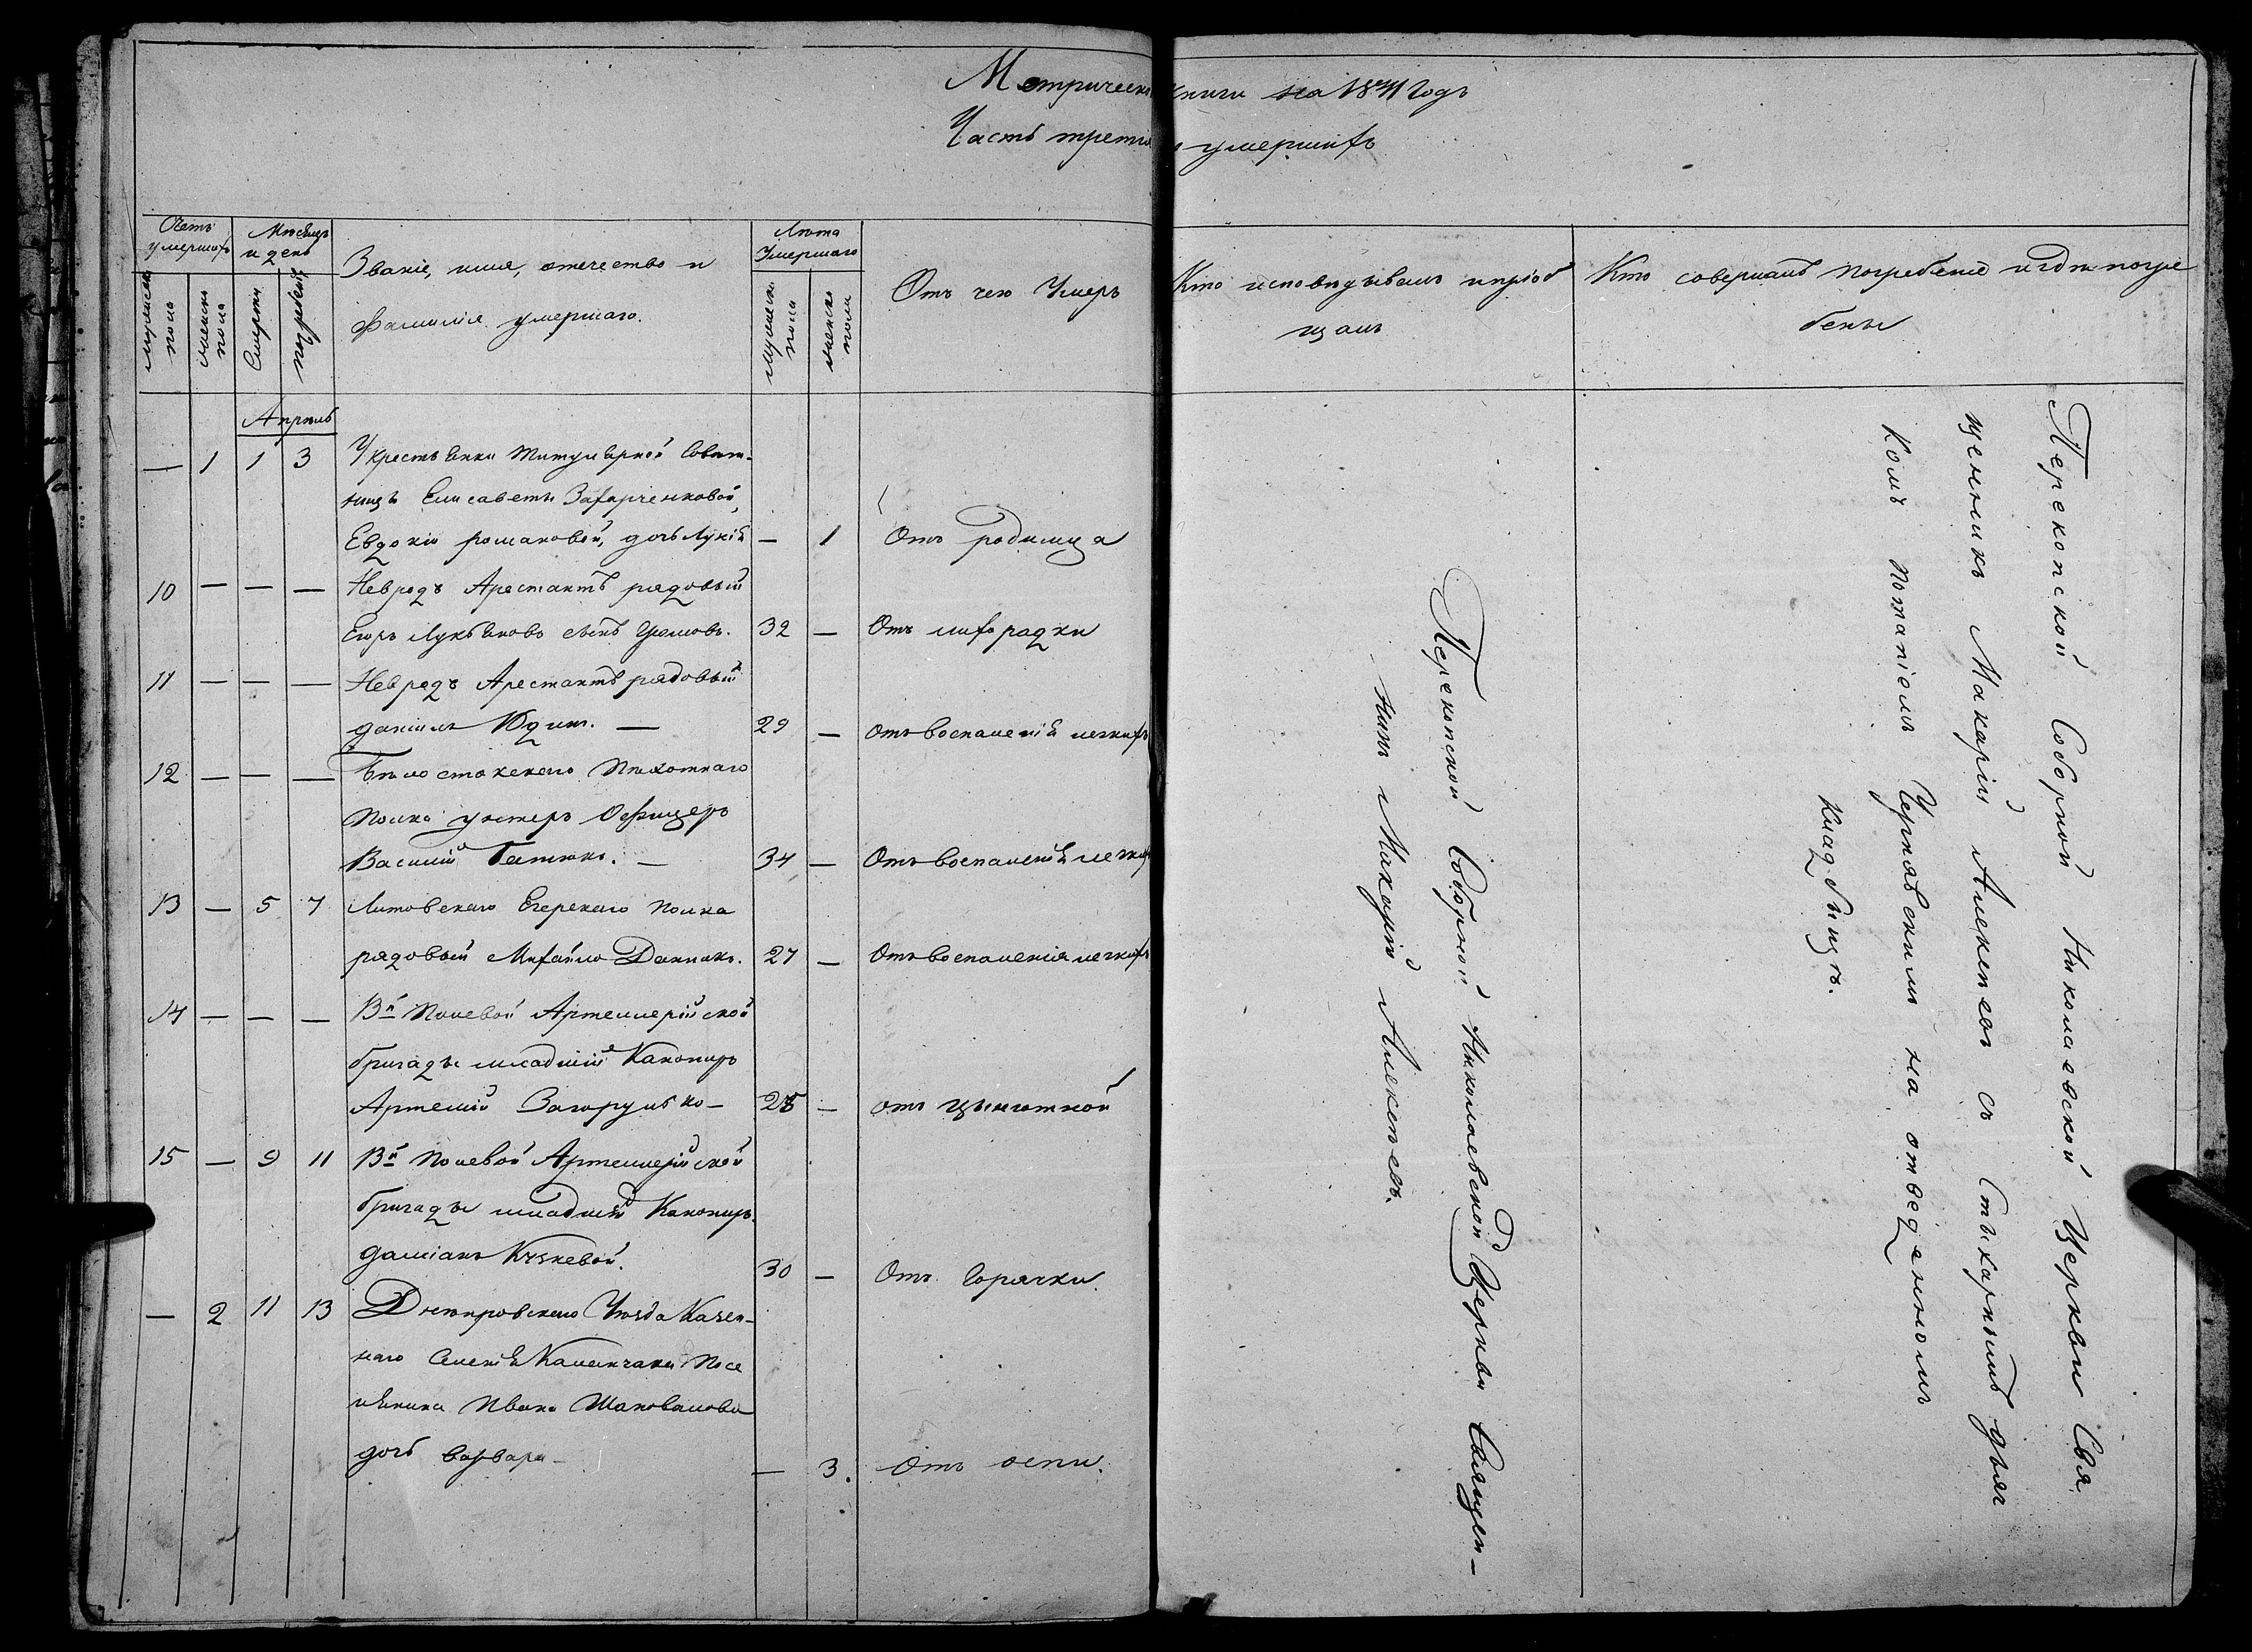 Метрической книги на 1841 Годъ
Часть третия умершихъ
Счетъ умершихъ
Мѣсяцъ и день
Званіе, имя, отечество и
Фамилія умершаго.
Лѣта Умершаго
Отъ чего Умеръ
Кто исповѣдывалъ и пріоб
щалъ
Кто совершалъ погребеніе и гдѣ погре
бены
мужеска пола
женска пола
Смерти
погребенія
мужеска пола
женска пола
Апрѣль
— 1 1 3 У крестьянки титулярной Совѣт-
ницы Елисаветы Захарченковой,
Евдокіи романовой, дочь Лукія — 1 Отъ родимца
10 — — — Невредъ Арестантъ рядовый
Егоръ Лукьяновъ сынъ 32 — Отъ лихорадки
11 — — — Невредъ Арестантъ рядовый
даніилъ Юдин. — 29 — Отъ воспаленія легкихъ
12 — — — Бѣлостокскаго Пѣхотнаго
Полка унтеръ Офицеръ
Василій — 34 — Отъ воспаленія легкихъ
13 — 5 7 Литовскаго Егерскаго полка
рядовый Михайло 27 — Отъ воспаленія легкихъ
14 — — — 13й Полевой Артеллерійской
бригады младшій Канониръ
Артемій Загорулько — 28 — отъ цынготной
15 — 9 11 13й Полевой Артеллерійской
бригады младшій Канониръ
даміанъ 30 — Отъ Горячки.
— 2 11 13 Днѣпровскаго Уѣзда Казен-
наго Селенія Каланчака Посе
лянина Ивана Шаповалова
дочь варвара — — 3. Отъ оспи.
Перекопской Соборной Николаевской Церкви Священ-
никъ Макарій Алексѣевъ.
Перекопской Соборной Николаевской Церкви Свя
щенникъ Макарій Алексѣевъ съ Стихарнымъ дьяч
комъ Чернявскимъ на отведенномъ
кладбищѣ.